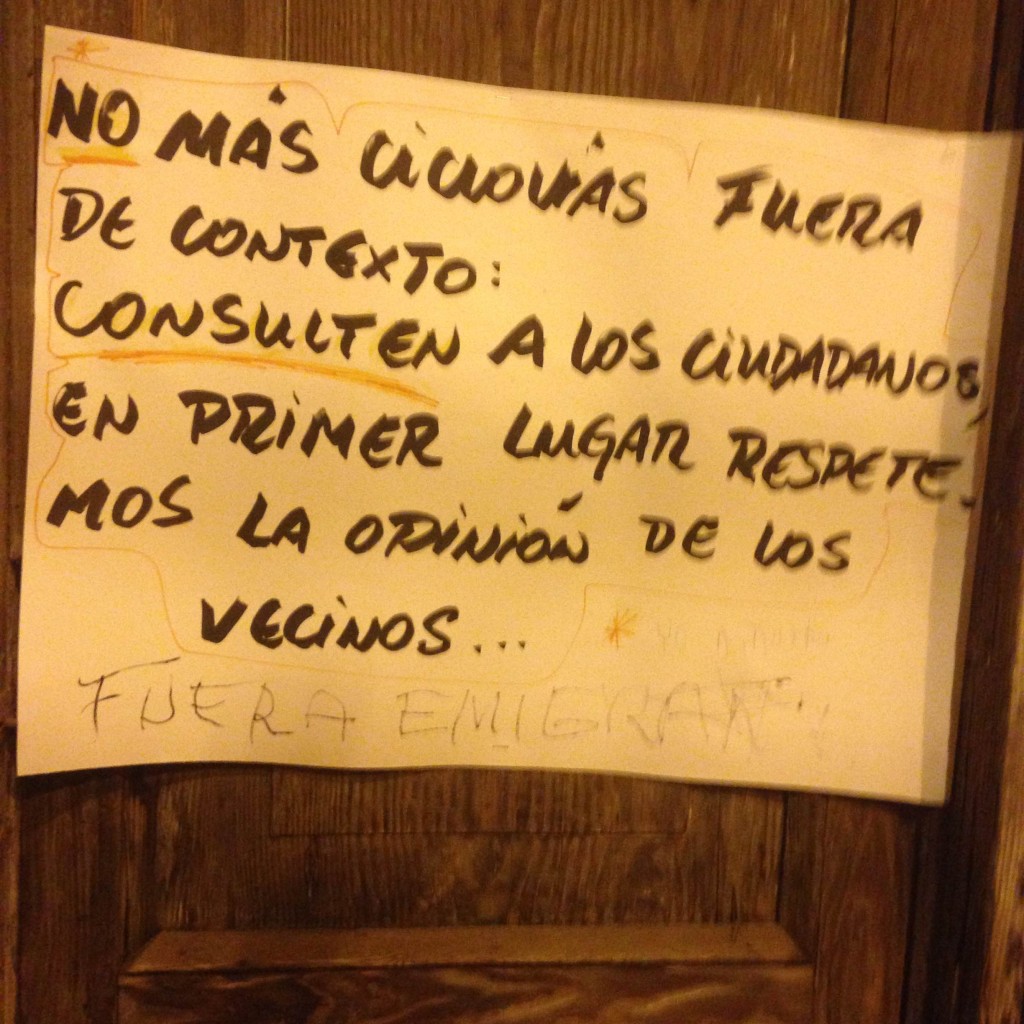 NO MÁS CICLOVÍAS FUERA
DE CONTEXTO:
CONSULTEN A LOS CIUDADANOS,
EN PRIMER LUGAR RESPETE-
MOS LA OPINIÓN DE LOS
VECINOS...
FUERA